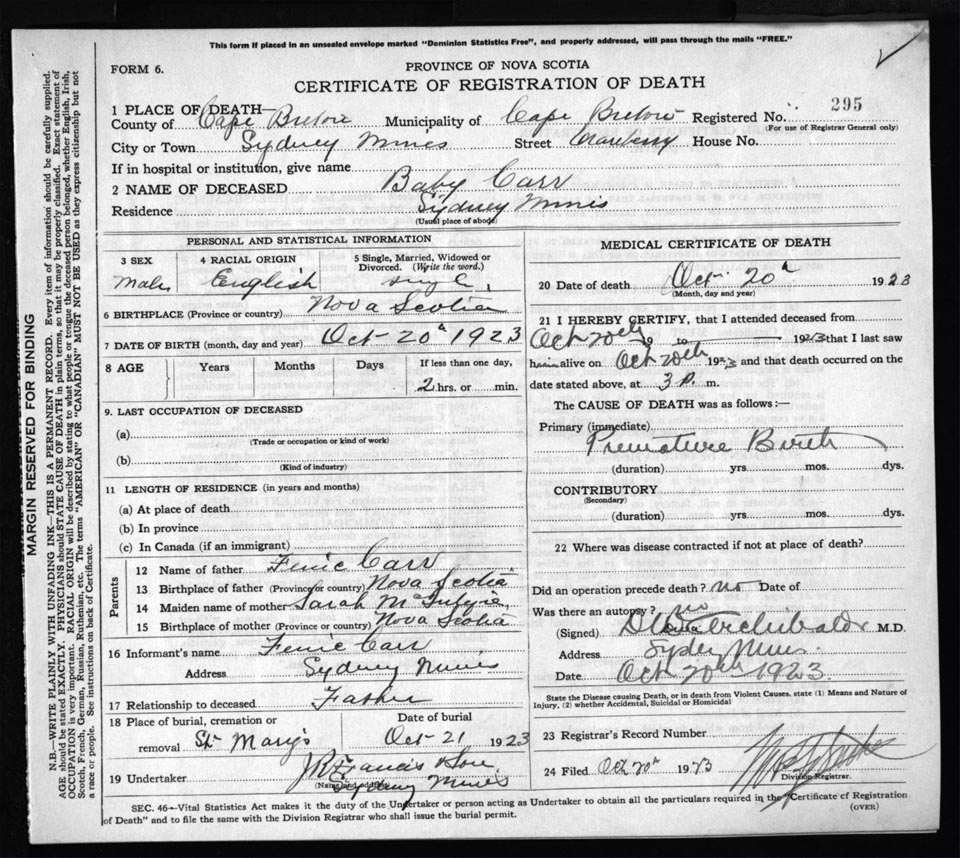 This form if placed in an unsealed envelope marked "Dominion Statistics Free", and properly addressed, will pass through the mails "FREE."
FORM 6.
PROVINCE OF NOVA SCOTIA
CERTIFICATE OF REGISTRATION OF DEATH
295
1 PLACE OF DEATH—
County of Cape Breton Municipality of Cape Breton Registered No.
(For use of Registrar General only)
City or Town Sydney Mines Street Cranberry House No.
If in hospital or institution, give name
2 NAME OF DECEASED Baby Carr
Residence Sydney Mines
(Usual place of abode)
PERSONAL AND STATISTICAL INFORMATION
3 SEX 4 RACIAL ORIGIN 5 Single, Married, Widowed or Divorced. (Write the word.)
Male English single
6 BIRTHPLACE (Province or country) Nova Scotia
7 DATE OF BIRTH (month, day and year) Oct 20th 1923
8 AGE Years Months Days If less than one day,
2 hrs. or min.
9. LAST OCCUPATION OF DECEASED
(a)
(Trade or occupation or kind of work)
(b)
(Kind of industry)
11 LENGTH OF RESIDENCE (in years and months)
(a) At place of death
(b) In province
(c) In Canada (if an immigrant)
Parents
12 Name of father Carr
13 Birthplace of father (Province or country) Nova Scotia
14 Maiden name of mother Sarah
15 Birthplace of mother (Province or country) Nova Scotia
16 Informant's name Carr
Address Sydney Mines
17 Relationship to deceased Father
18 Place of burial, cremation or Date of burial
removal St Mary's Oct 21 1923
19 Undertaker Francis & Son
(Name and address) Sydney Mines
MEDICAL CERTIFICATE OF DEATH
20 Date of death Oct 20th 1923
(Month, day and year)
21 I HEREBY CERTIFY, that I attended deceased from
Oct 20th 19 to 1923 that I last saw
him alive on Oct 20th 1923 and that death occurred on the
date stated above, at 3 P. m.
The CAUSE OF DEATH was as follows:—
Primary (immediate)
Premature Birth
(duration) yrs. mos. dys.
CONTRIBUTORY
(Secondary)
(duration) yrs. mos. dys.
22 Where was disease contracted if not at place of death?
Did an operation precede death? no Date of
Was there an autopsy? no
(Signed) Archibald M.D.
Address Sydney Mines
Date Oct 20th 1923
State the Disease causing Death, or in death from Violent Causes, state (1) Means and Nature of
Injury, (2) whether Accidental, Suicidal or Homicidal
23 Registrar's Record Number
24 Filed Oct 20th 1923
Division Registrar.
SEC. 46—Vital Statistics Act makes it the duty of the Undertaker or person acting as Undertaker to obtain all the particulars required in the "Certificate of Registration
of Death" and to file the same with the Division Registrar who shall issue the burial permit.
(OVER)
MARGIN RESERVED FOR BINDING
N.B.—WRITE PLAINLY WITH UNFADING INK—THIS IS A PERMANENT RECORD. Every item of information should be carefully supplied.
AGE should be stated EXACTLY. PHYSICIANS should STATE CAUSE OF DEATH in plain terms, so that it may be properly classified. Exact statement of
OCCUPATION is very important. RACIAL ORIGIN will be described by stating to what people or tongue the deceased person belonged, whether English, Irish,
Scotch, French, German, Russian, Ruthenian, etc. The terms "AMERICAN" or "CANADIAN" MUST NOT BE USED as they express citizenship but not
a race or people. See instructions on back of Certificate.